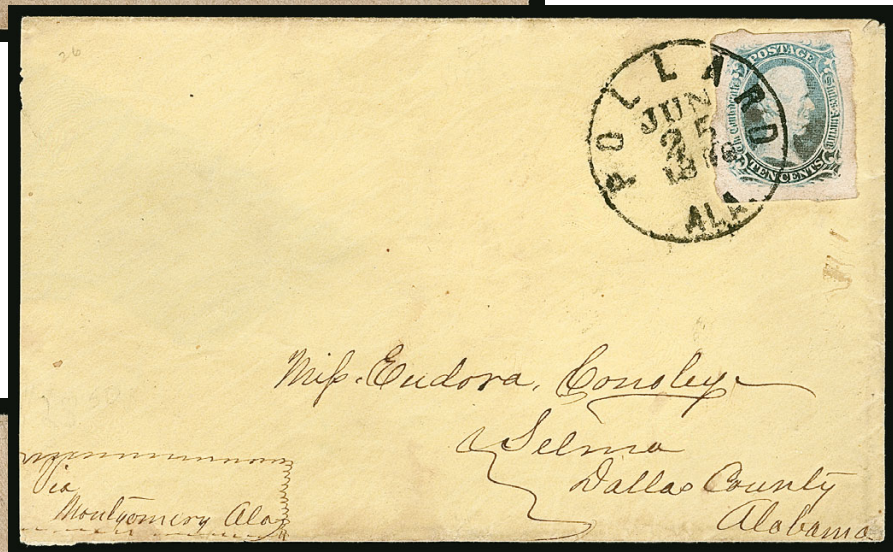 26
POLLARD
JUN
25
ALA.
POSTAGE
The Confederate States of America
TEN CENTS
Miſs. Eudora. Conoley
Selma
Dallas County
Alabama
Via
Montgomery Ala